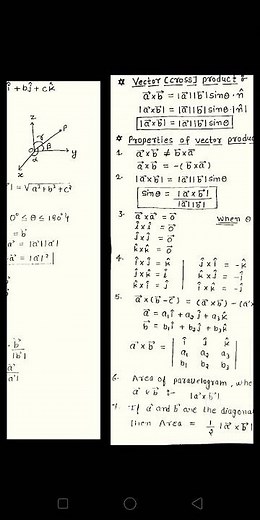 î + bĵ + ck̂
z
r
P
β
O
α
y
x
| = √a²+b²+c²
0° ≤ θ ≤ 180°
= b⃗
= |a⃗||a⃗|
= |a⃗|²
b⃗
|b⃗|
a⃗
☆ Vector [cross] product :-
a⃗×b⃗ = |a⃗||b⃗| sinθ · n̂
|a⃗×b⃗| = |a⃗||b⃗| sinθ |n̂|
|a⃗×b⃗| = |a⃗||b⃗| sinθ
☆ Properties of vector produc
1. a⃗×b⃗ ≠ b⃗×a⃗
a⃗×b⃗ = -(b⃗×a⃗)
2. |a⃗×b⃗| = |a⃗||b⃗| sinθ
sinθ = |a⃗×b⃗| / |a⃗||b⃗|
3. a⃗×a⃗ = 0⃗ when θ
î×î = 0⃗
ĵ×ĵ = 0⃗
k̂×k̂ = 0⃗
4. î×ĵ = k̂ | ĵ×î = -k̂
ĵ×k̂ = î | k̂×ĵ = -î
k̂×î = ĵ | î×k̂ = -ĵ
5. a⃗×(b⃗-c⃗) = (a⃗×b⃗) - (a⃗×
a⃗ = a₁î + a₂ĵ + a₃k̂
b⃗ = b₁î + b₂ĵ + b₃k̂
a⃗×b⃗ = | î ĵ k̂ |
| a₁ a₂ a₃ |
| b₁ b₂ b₃ |
6. Area of parallelogram, whe
a⃗ × b⃗ :- |a⃗×b⃗|
7. If a⃗ and b⃗ are the diagona
then Area = 1/2 |a⃗×b⃗|